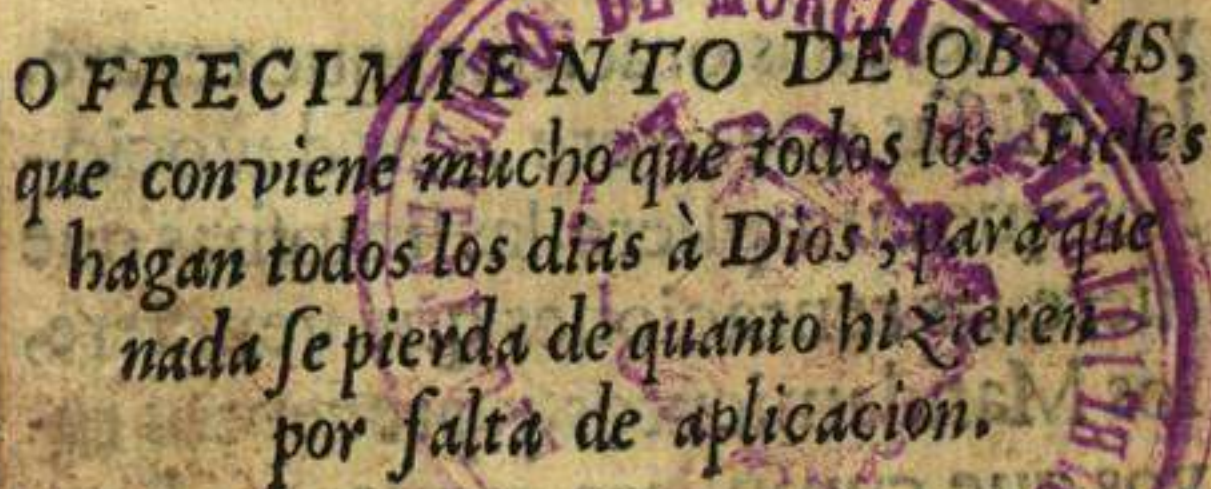 OFRECIMIENTO DE OBRAS,
que conviene mucho que todos los Fieles
hagan todos los dias à Dios, para que
nada ſe pierda de quanto hizieren
por falta de aplicacion.
DE MURCIA